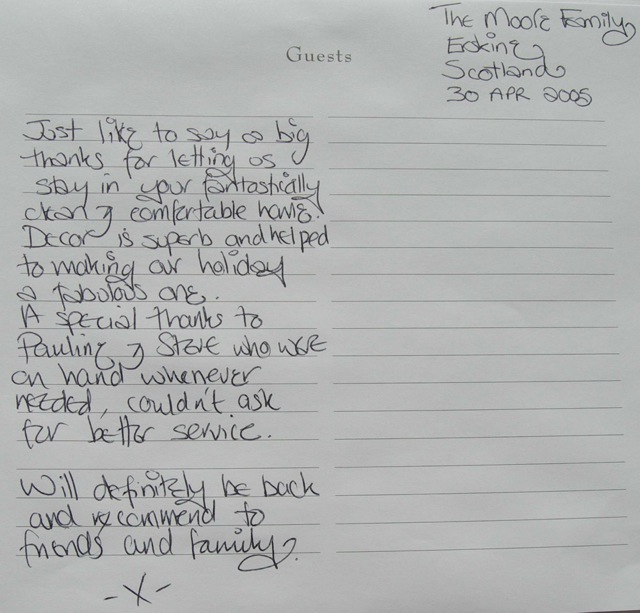 Guests
The Moore Family
Erskine
Scotland
30 APR 2005
Just like to say a big
thanks for letting us
stay in your fantastically
clean & comfortable home.
Decor is superb and helped
to making our holiday
a fabulous one.
A special thanks to
Pauline & Steve who were
on hand whenever
needed, couldn't ask
for better service.
Will definitely be back
and recommend to
friends and family.
-X-